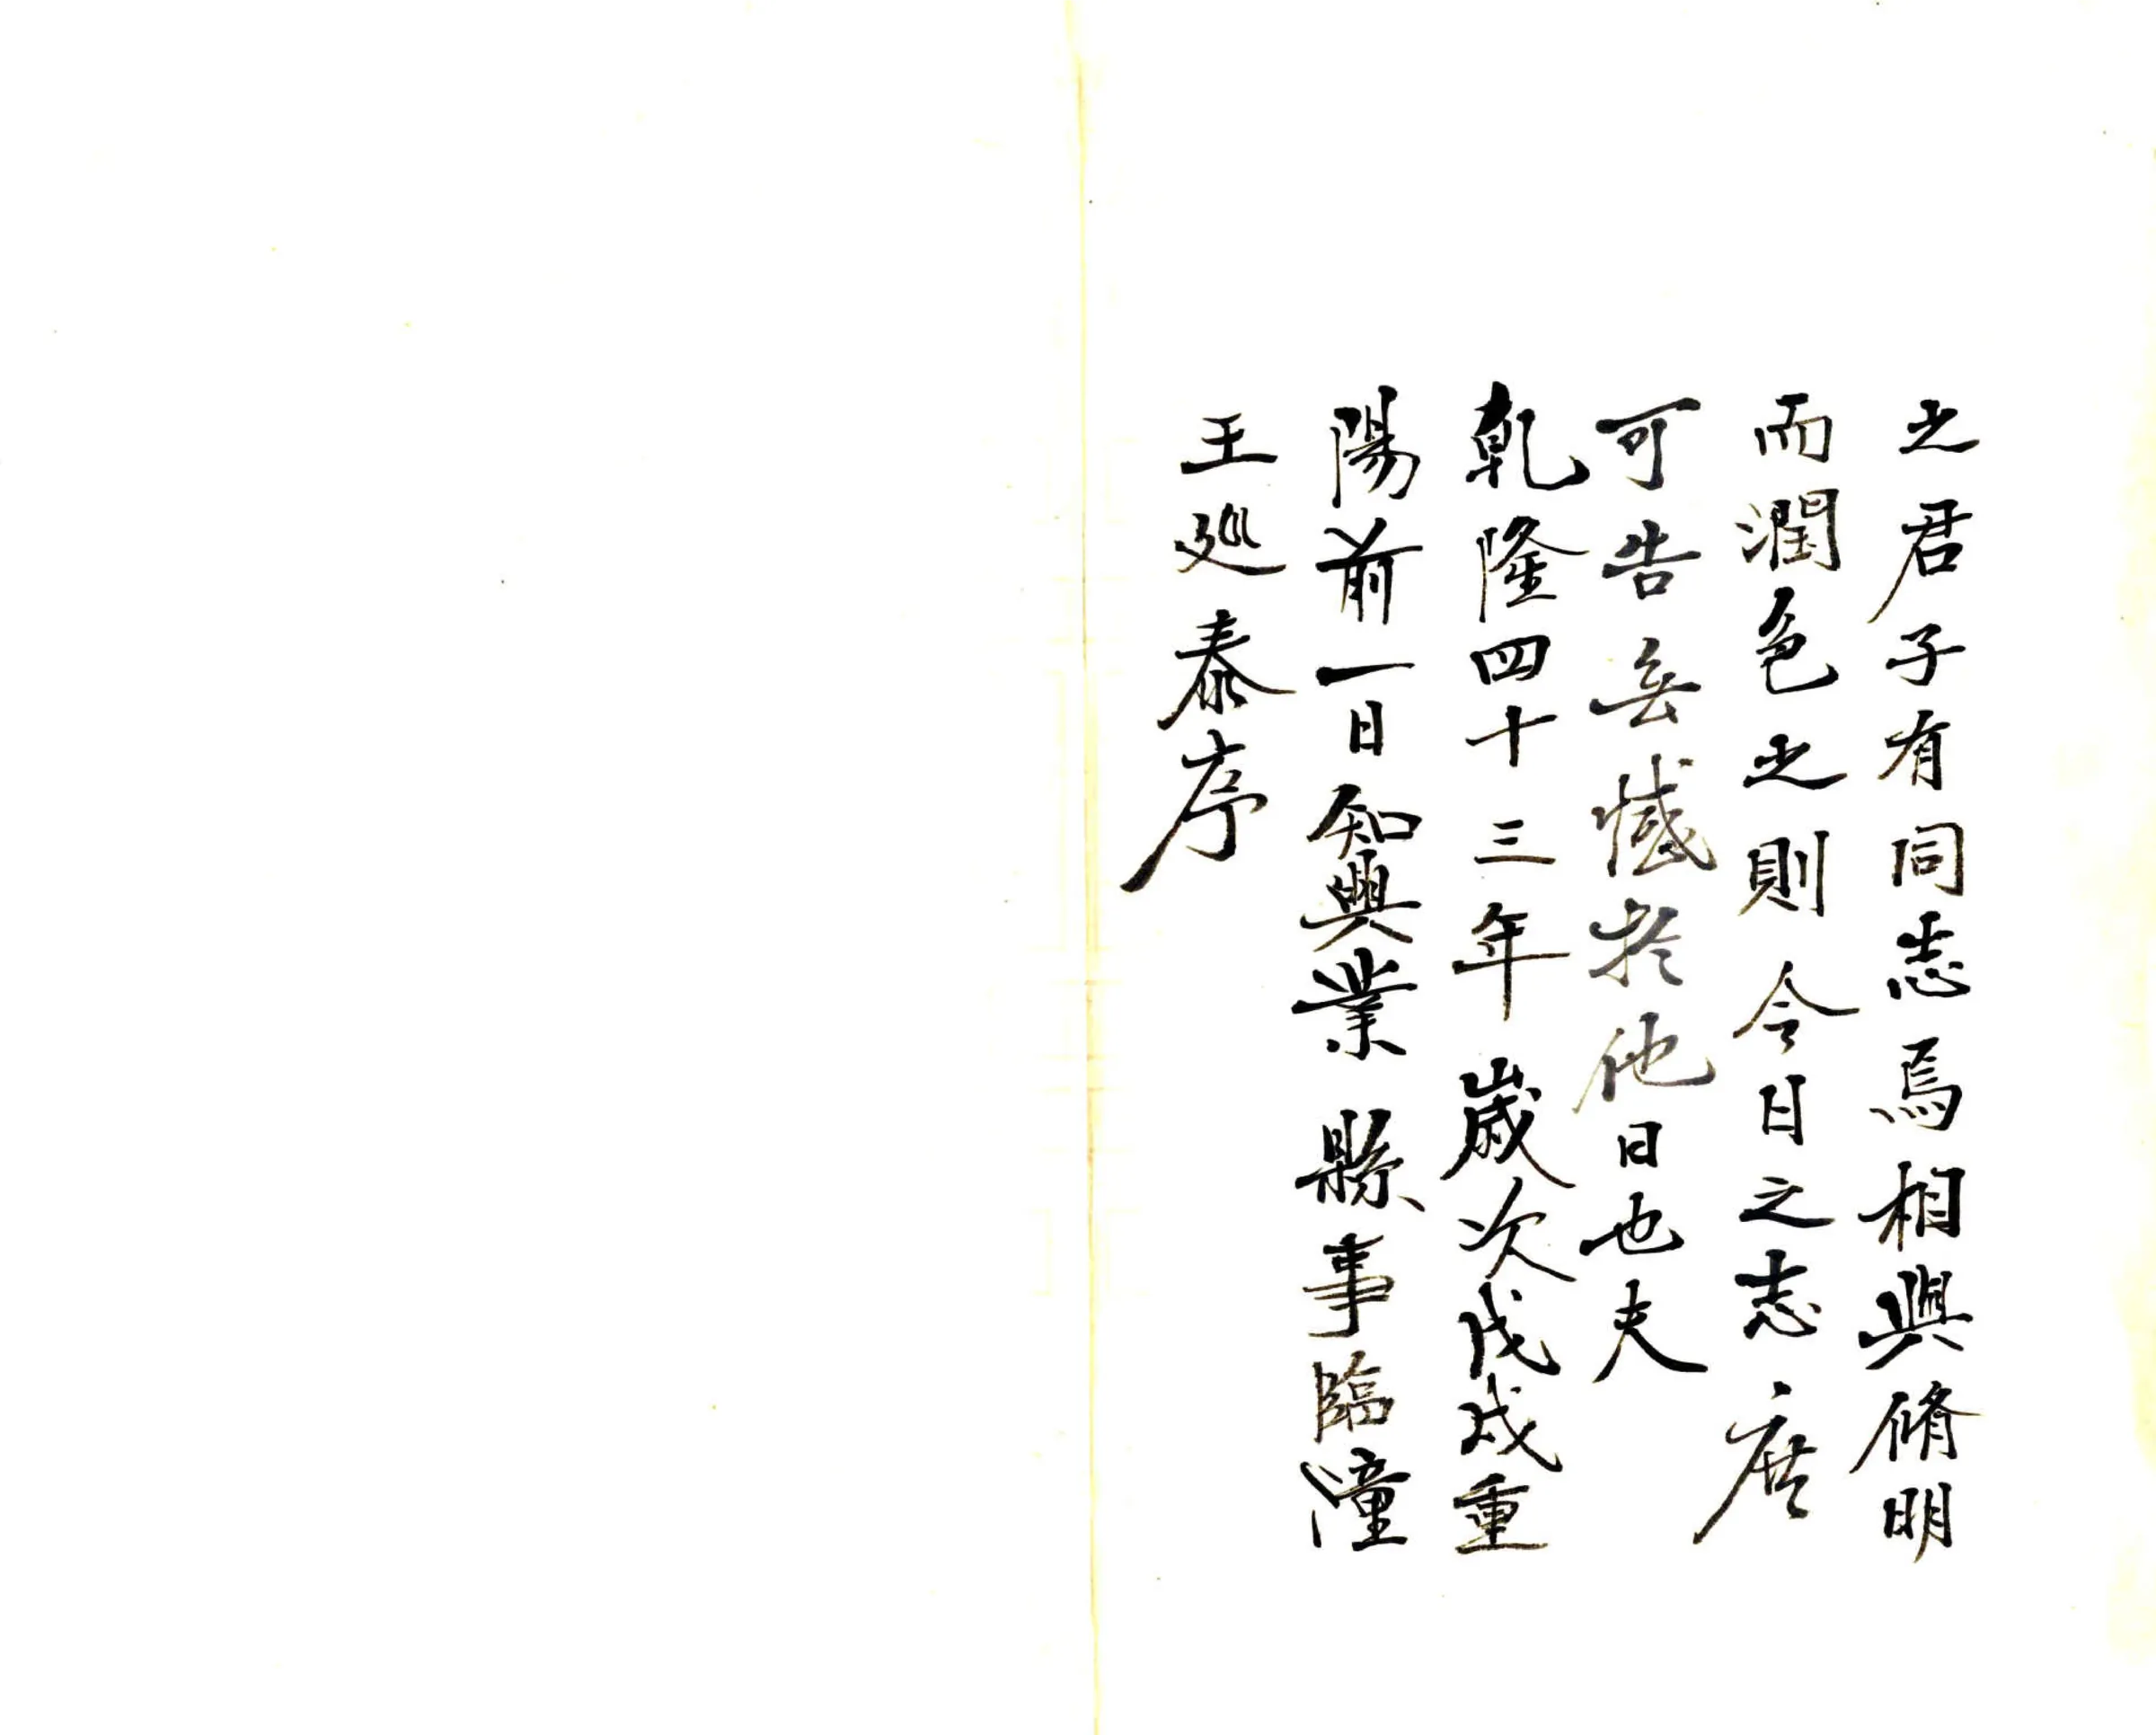 之君子有同志焉相與脩明
而潤色之則今日之志庶
可告無憾於他日也夫
乾隆四十三年歲次戊戌重
陽前一日知興業縣事臨潼
王巡泰序